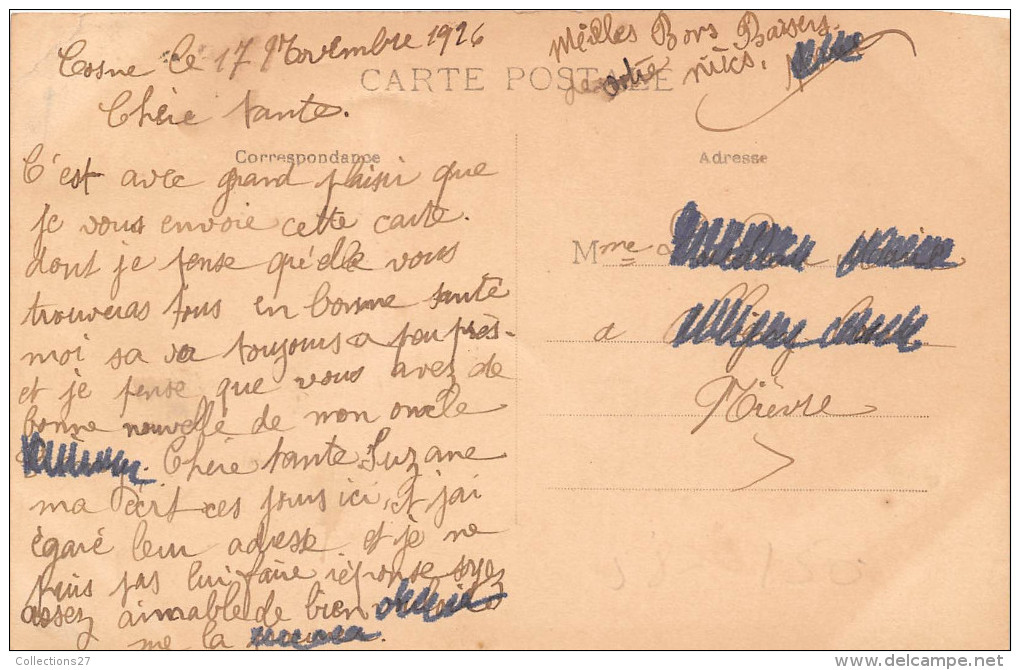 Cosne le 17 Novembre 1916
Meilles Bons Baisers
CARTE POSTALE
Chère tante.
Correspondance
C'est avec grand plaisir que
je vous envoie cette carte.
dont je pense qu'elle vous
trouveras tous en bonne santé
moi sa va toujours a peu près-
et je pense que vous avez de
bonne nouvelle de mon oncle
Chère tante Suzane
ma écrit ces jours ici, et j'ai
égaré leur adresse et je ne
puis pas lui faire réponse soyez
assez aimable de bien
me la
Adresse
Mme
a
Nièvre
Collections27
www.delcampe.net